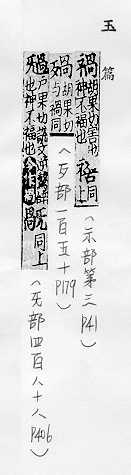 玉
篇
禍胡果切害也神不福也同上
(示部第三P41)
胡果切与禍同
(歹部一百五十P179)
户果切也神不福也同上
(旡部四百八十八P406)